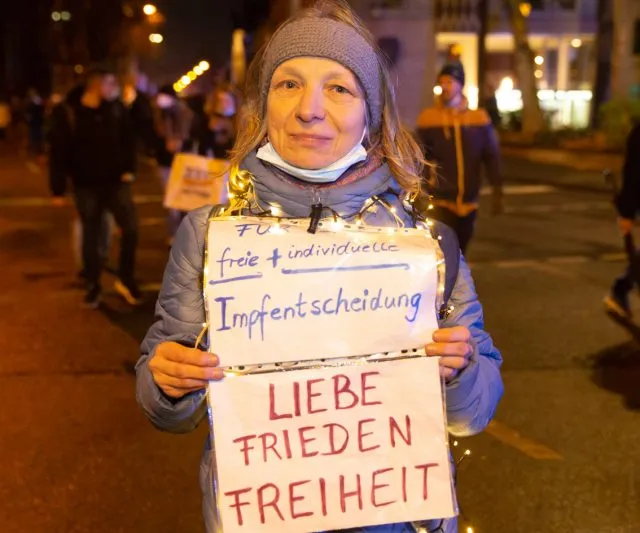 FÜR
freie + individuelle
Impfentscheidung
LIEBE
FRIEDEN
FREIHEIT